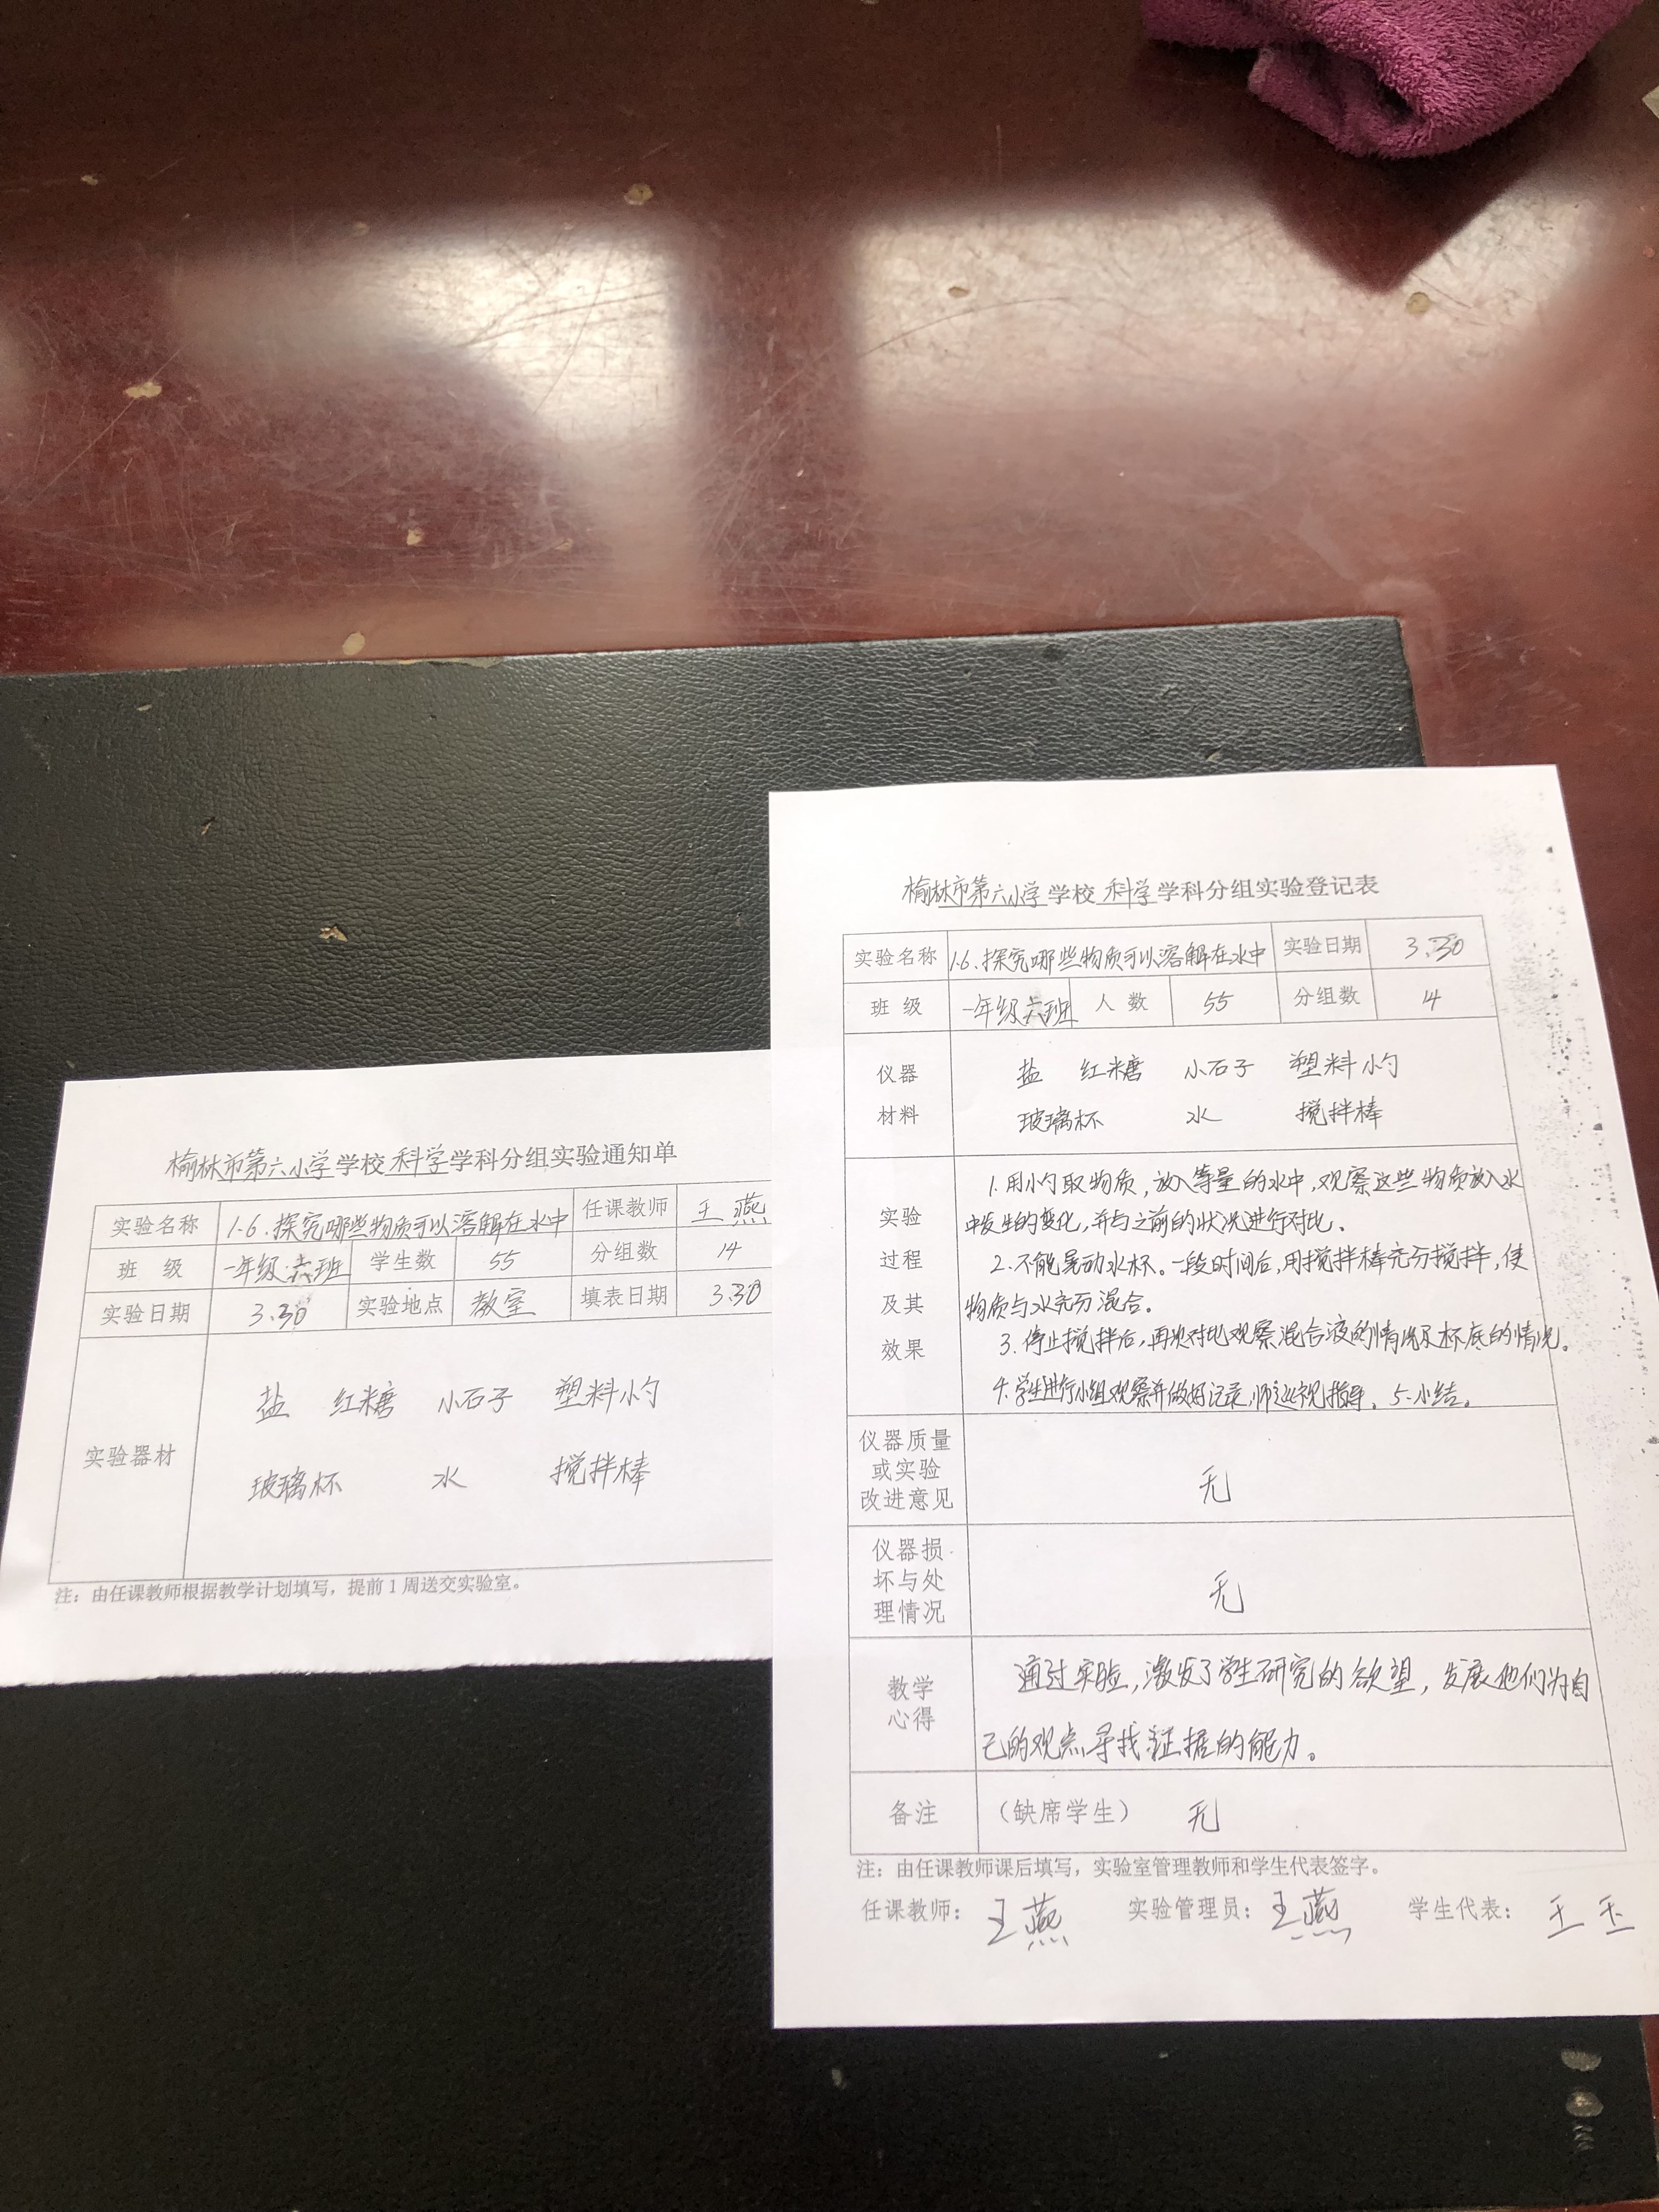 榆林市第六小学学校 科学学科分组实验通知单
实验名称 1.6.探究哪些物质可以溶解在水中 任课教师 王燕
班 级 一年级六班 学生数 55 分组数 14
实验日期 3.30 实验地点 教室 填表日期 3.30
实验器材
盐 红糖 小石子 塑料小勺
玻璃杯 水 搅拌棒
注：由任课教师根据教学计划填写，提前1周送交实验室。
榆林市第六小学学校 科学学科分组实验登记表
实验名称 1.6.探究哪些物质可以溶解在水中 实验日期 3.30
班 级 一年级六班 人 数 55 分组数 14
仪器
材料
盐 红糖 小石子 塑料小勺
玻璃杯 水 搅拌棒
实验
过程
及其
效果
1.用小勺取物质，放入等量的水中，观察这些物质放入水
中发生的变化，并与之前的状况进行对比。
2.不能晃动水杯。一段时间后，用搅拌棒充分搅拌，使
物质与水充分混合。
3.停止搅拌后，再次对比观察混合液的情况及杯底的情况。
4.学生进行小组观察并做好记录，师巡视指导。5.小结。
仪器质量
或实验
改进意见
无
仪器损
坏与处
理情况
无
教学
心得
通过实验，激发了学生研究的欲望，发展他们为自
己的观点寻找证据的能力。
备注 （缺席学生） 无
注：由任课教师课后填写，实验室管理教师和学生代表签字。
任课教师：王燕 实验管理员：王燕 学生代表：王玉